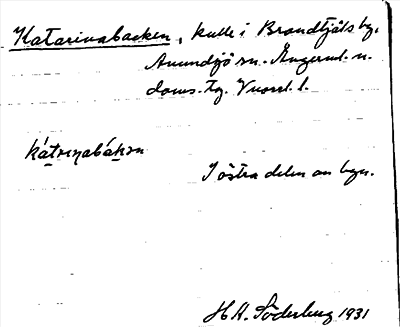 Katarinabacken, kulle i Brandtjäls by,
Anundsjö sn. Ångerml. n.
doms. tg. Vnorrl. l.
kátrɩnabákɐn
I östra delen av byn.
H.K. Söderberg 1931